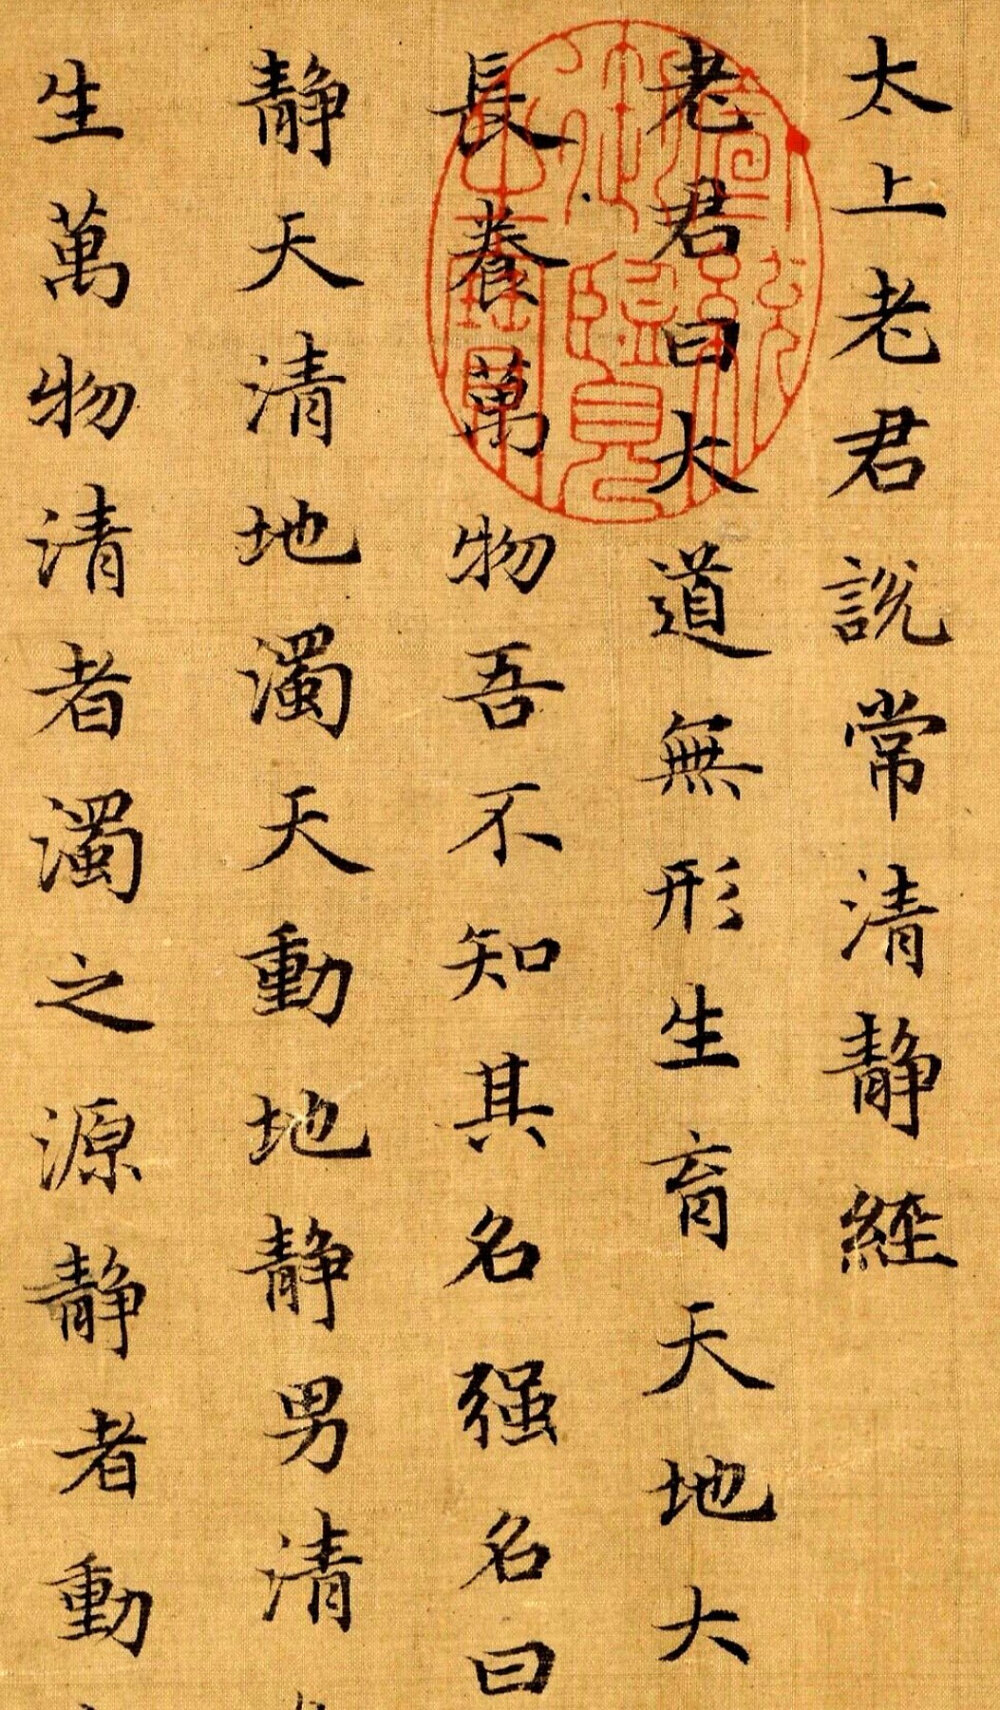 太上老君説常清静經
老君曰大道無形生育天地大
長養萬物吾不知其名强名曰
静天清地濁天動地静男清
生萬物清者濁之源静者動